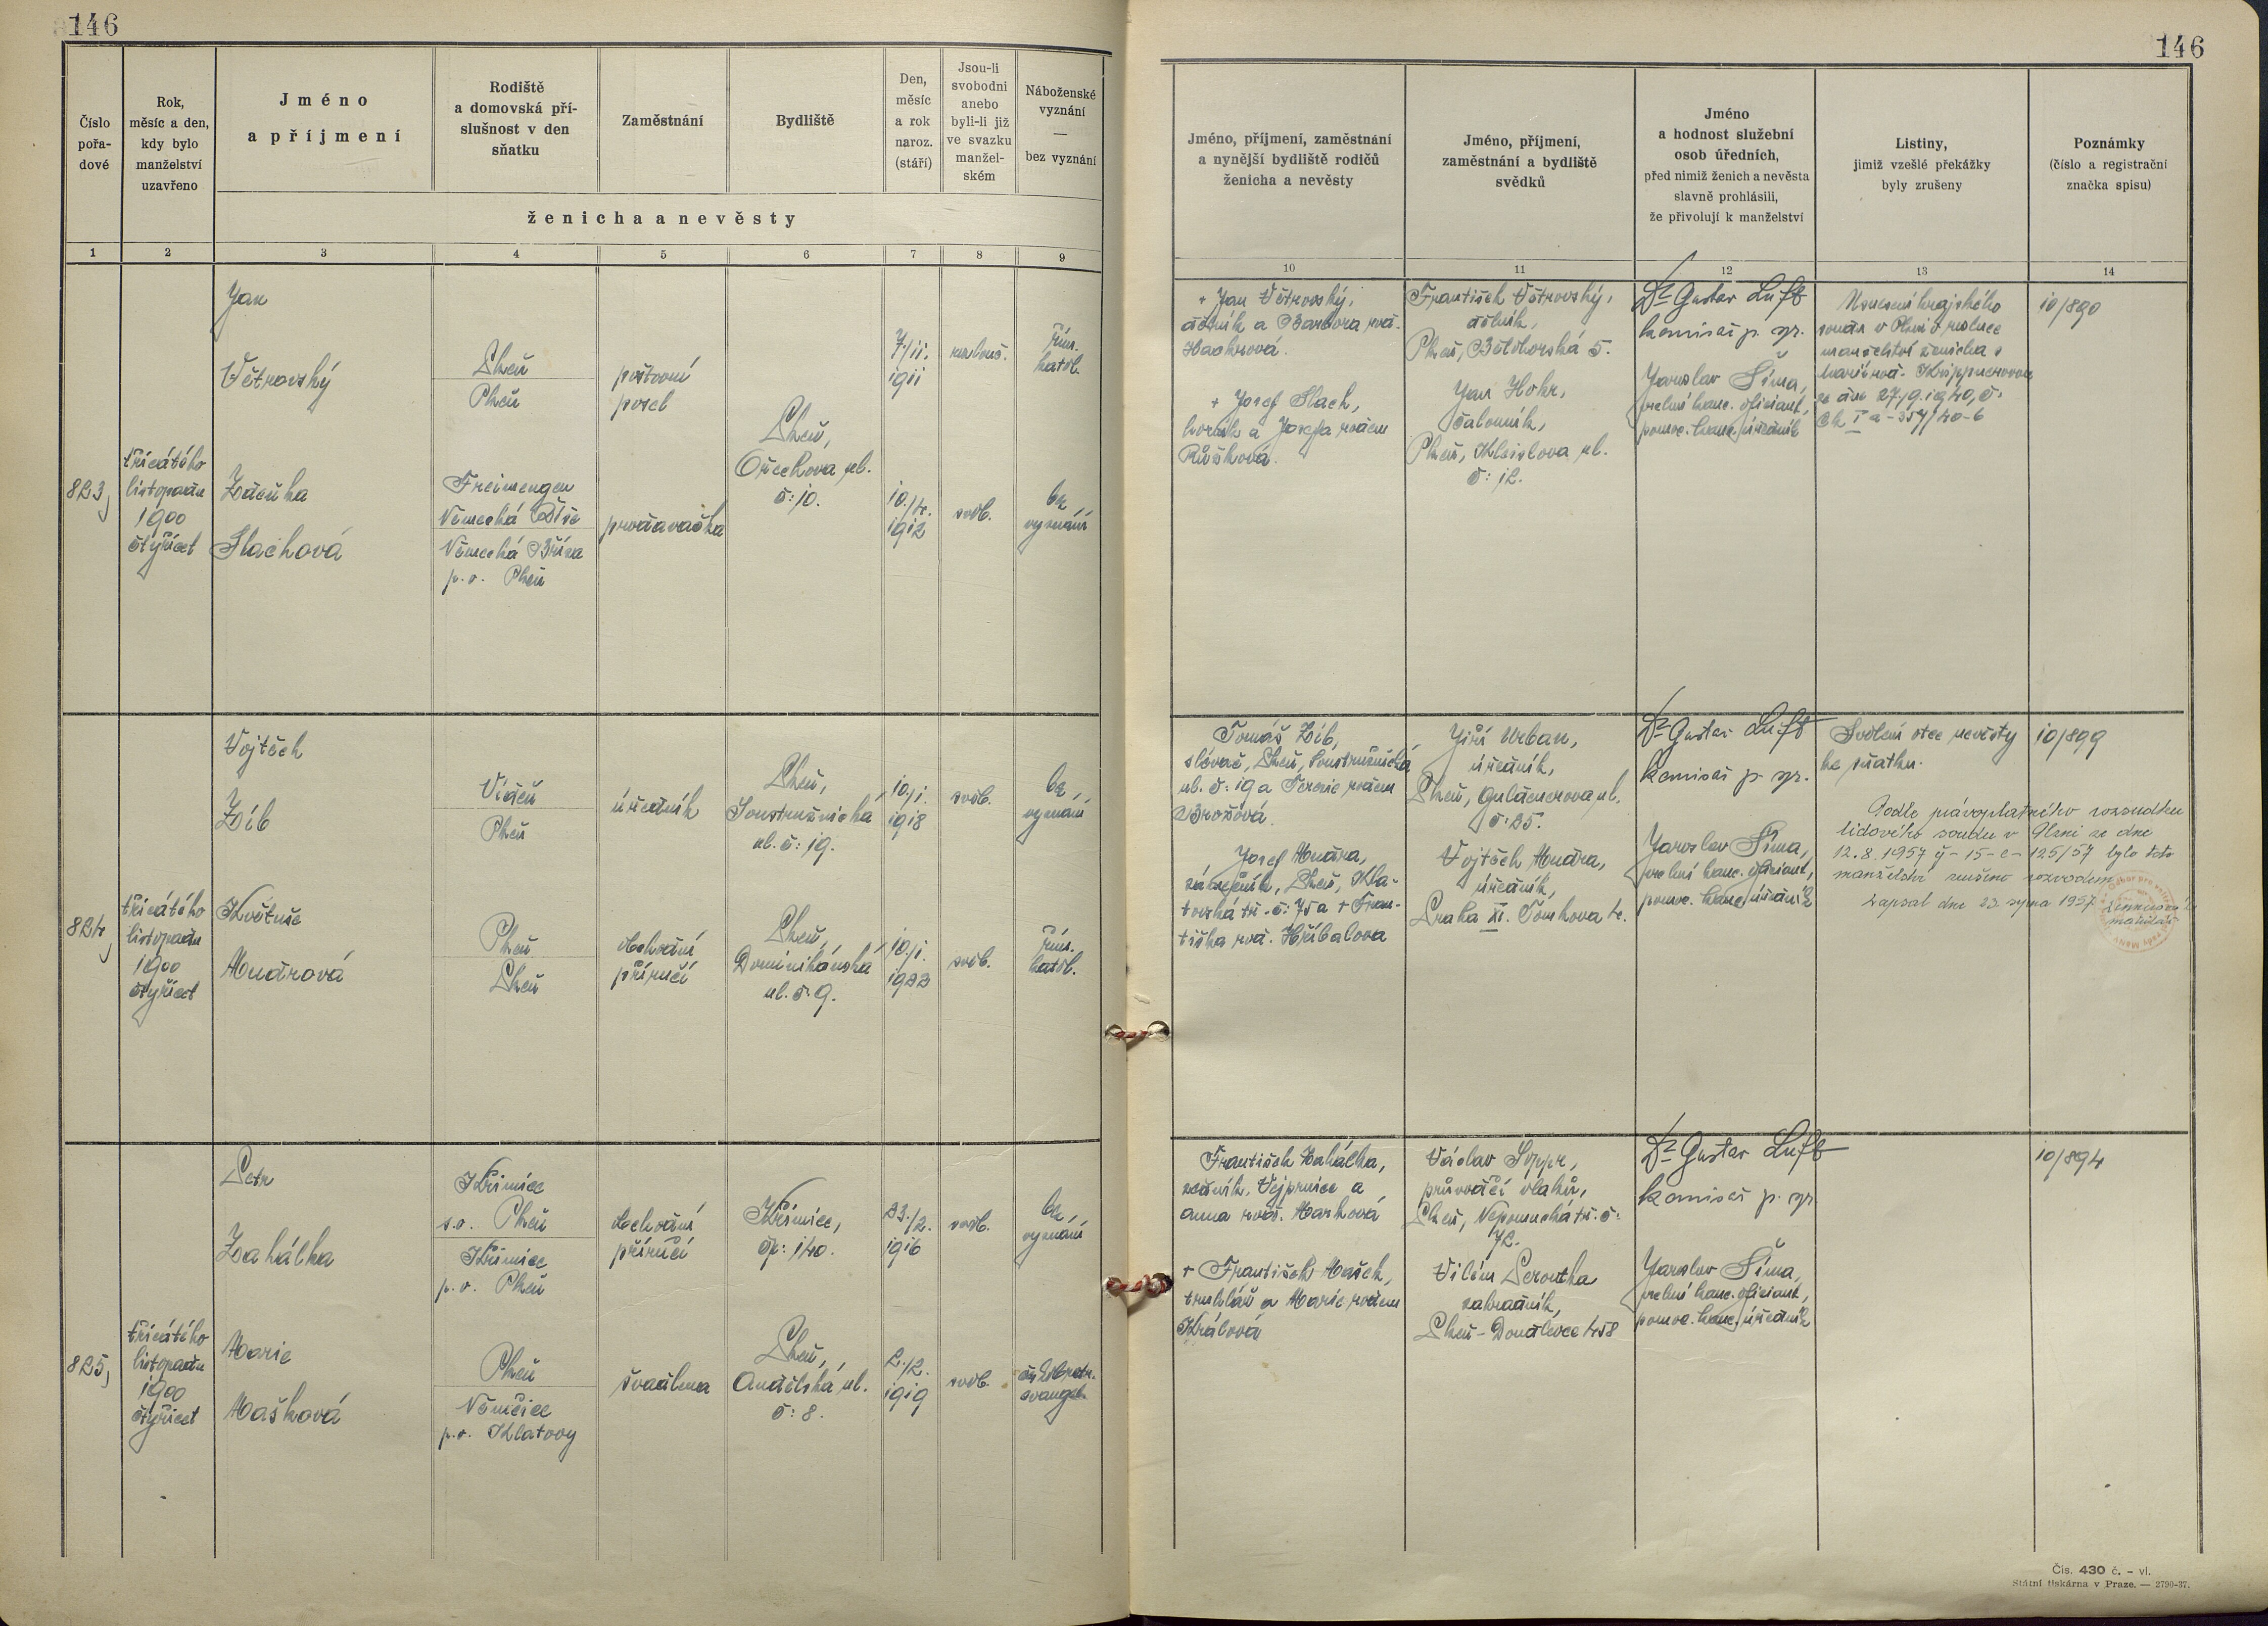 146
146
Číslo
pořa-
dové
Rok,
měsíc a den,
kdy bylo
manželství
uzavřeno
Jméno
a příjmení
Rodiště
a domovská pří-
slušnost v den
sňatku
Zaměstnání
Bydliště
Den,
měsíc
a rok
naroz.
(stáří)
Jsou-li
svobodni
anebo
byli-li již
ve svazku
manžel-
ském
Náboženské
vyznání
—
bez vyznání
ženicha a nevěsty
Jméno, příjmení, zaměstnání
a nynější bydliště rodičů
ženicha a nevěsty
Jméno, příjmení,
zaměstnání a bydliště
svědků
Jméno
a hodnost služební
osob úředních,
před nimiž ženich a nevěsta
slavně prohlásili,
že přivolují k manželství
Listiny,
jimiž vzešlé překážky
byly zrušeny
Poznámky
(číslo a registrační
značka spisu)
1 2 3 4 5 6 7 8 9
10 11 12 13 14
823,
třicátého
listopadu
1900
čtyřicet
Jan
Větrovský
Plzeň
Plzeň
poštovní
posel
Plzeň,
Ořechova ul.
č: 10.
7./11.
1911
rozlouč.
řím.
katol.
Zdeňka
Hachová
Freimengen
Německá Říše
Německá Bříza
p. o. Plzeň
prodavačka
10./4.
1912
svob.
bez
vyznání
+ Jan Větrovský,
dělník a Barbora roz.
+ Josef Hach,
horník a Josefa rozen
Růžková.
František Větrovský,
dělník,
Plzeň, Bělohorská 5.
Jan Hohr,
čalouník,
Plzeň, Kleislova ul.
č: 12.
Dr Gustav Luft
komisař p. spr.
Jaroslav Šíma,
velní kanc. oficiant,
pomoc. kanc. úředník
Usnesení krajského
soudu v Plzni o rozluce
manželství ženicha s
Marií roz.
ze dne 27./9. 1940, č.
Ck I a - 357/40-6
10/890
824,
třicátého
listopadu
1900
čtyřicet
Vojtěch
Zíb
Vídeň
Plzeň
úředník
Plzeň,
Soustružnická
ul. č: 19.
10./1.
1918
svob.
bez
vyznání
Květuše
Mudrová
Plzeň
Plzeň
obchodní
příručí
Plzeň,
Dominikánská
ul. č. 9.
10./1.
1923
svob.
řím.
katol.
Tomáš Zíb,
slévač, Plzeň, Soustružnická
ul. č: 19 a Terezie rozen
Brožová.
Josef Mudra,
zámečník, Plzeň, Kla-
tovská tř. č: 75 a + Fran-
tiška roz. Hříbalova
Jiří Urban,
úředník,
Plzeň, Guldenerova ul.
č: 25.
Vojtěch Mudra,
úředník,
Praha XI. Tomkova 4.
Dr Gustav Luft
komisař p. spr.
Jaroslav Šíma,
velní kanc. oficiant,
pomoc. kanc. úředník
Svolení otce nevěsty
ke sňatku.
Podle právoplatného rozsudku
lidového soudu v Plzni ze dne
12.8.1957 č - 15 - C - 125/57 bylo toto
manželství zrušeno rozvodem.
Zapsal dne 23. srpna 1957
matrikář
10/899
825,
třicátého
listopadu
1900
čtyřicet
Petr
Zahálka
Křimice
s. o. Plzeň
Křimice
p. o. Plzeň
obchodní
příručí
Křimice,
čp: 140.
23./2.
1916
svob.
bez
vyznání
Marie
Mašková
Plzeň
Němčice
p. o. Klatovy
švadlena
Plzeň,
Andělská ul.
č: 8.
2./2.
1919
svob.
evangel.
František Zahálka,
zedník, Vejprnice a
Anna roz. Marková
+ František Mašek,
truhlář a Marie rozen
Králová
Václav Sopr,
průvodčí vlaků,
Plzeň, Nepomucká tř. č:
72.
Vilém Peroutka
zahradník,
Plzeň - Doudlevce 458
Dr Gustav Luft
komisař p. spr.
Jaroslav Šíma,
velní kanc. oficiant,
pomoc. kanc. úředník
10/894
Čís. 430 č. - vl.
Státní tiskárna v Praze. — 2790-37.